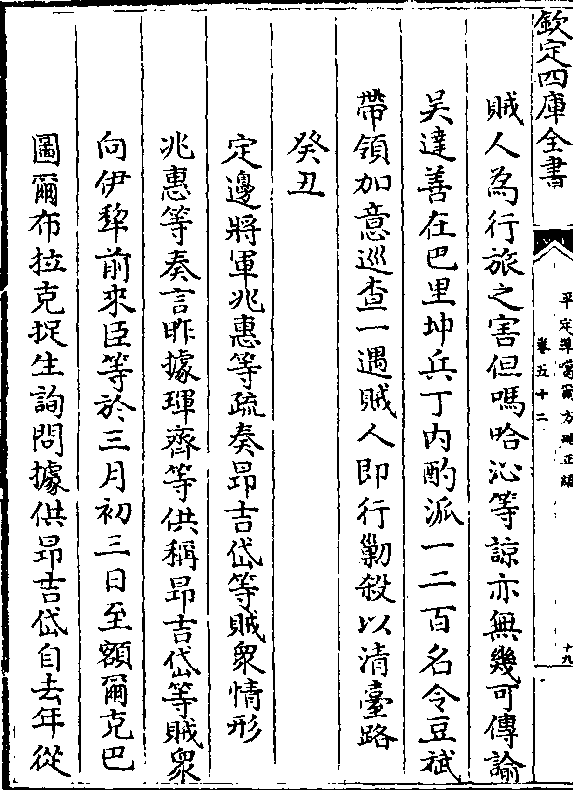 欽定四庫全書
平定準噶爾方略正編
卷五十二
十九
賊人為行旅之害但嗎哈沁等諒亦無幾可傳諭
吳達善在巴里坤兵丁內酌派一二百名令豆斌
帶領加意巡查一遇賊人即行勦殺以清臺路
癸丑
定邊將軍兆惠等疏奏昂吉岱等賊衆情形
兆惠等奏言昨據琿齊等供稱昂吉岱等賊衆
向伊犂前來臣等於三月初三日至額爾克巴
圖爾布拉克捉生詢問據供昂吉岱自去年從